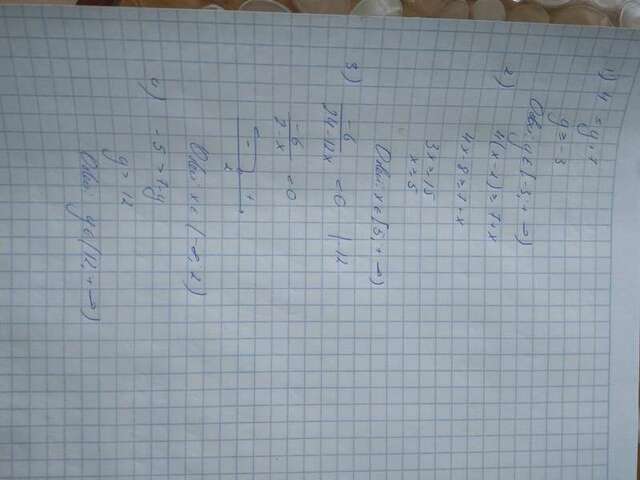 1) 4 = y + 7
y = -3
Отв.: y ∈ (-3; + ∞)
2) 4(x - 2) = 7 + x
4x - 8 = 7 + x
3x = 15
x = 5
Отв.: x ∈ [5; + ∞)
3) -6 / =0
-6 / 2-x =0
2
Отв.: x ∈ (-∞; 2)
4) -5 = 7-y
y = 12
Отв.: y ∈ (12; + ∞)